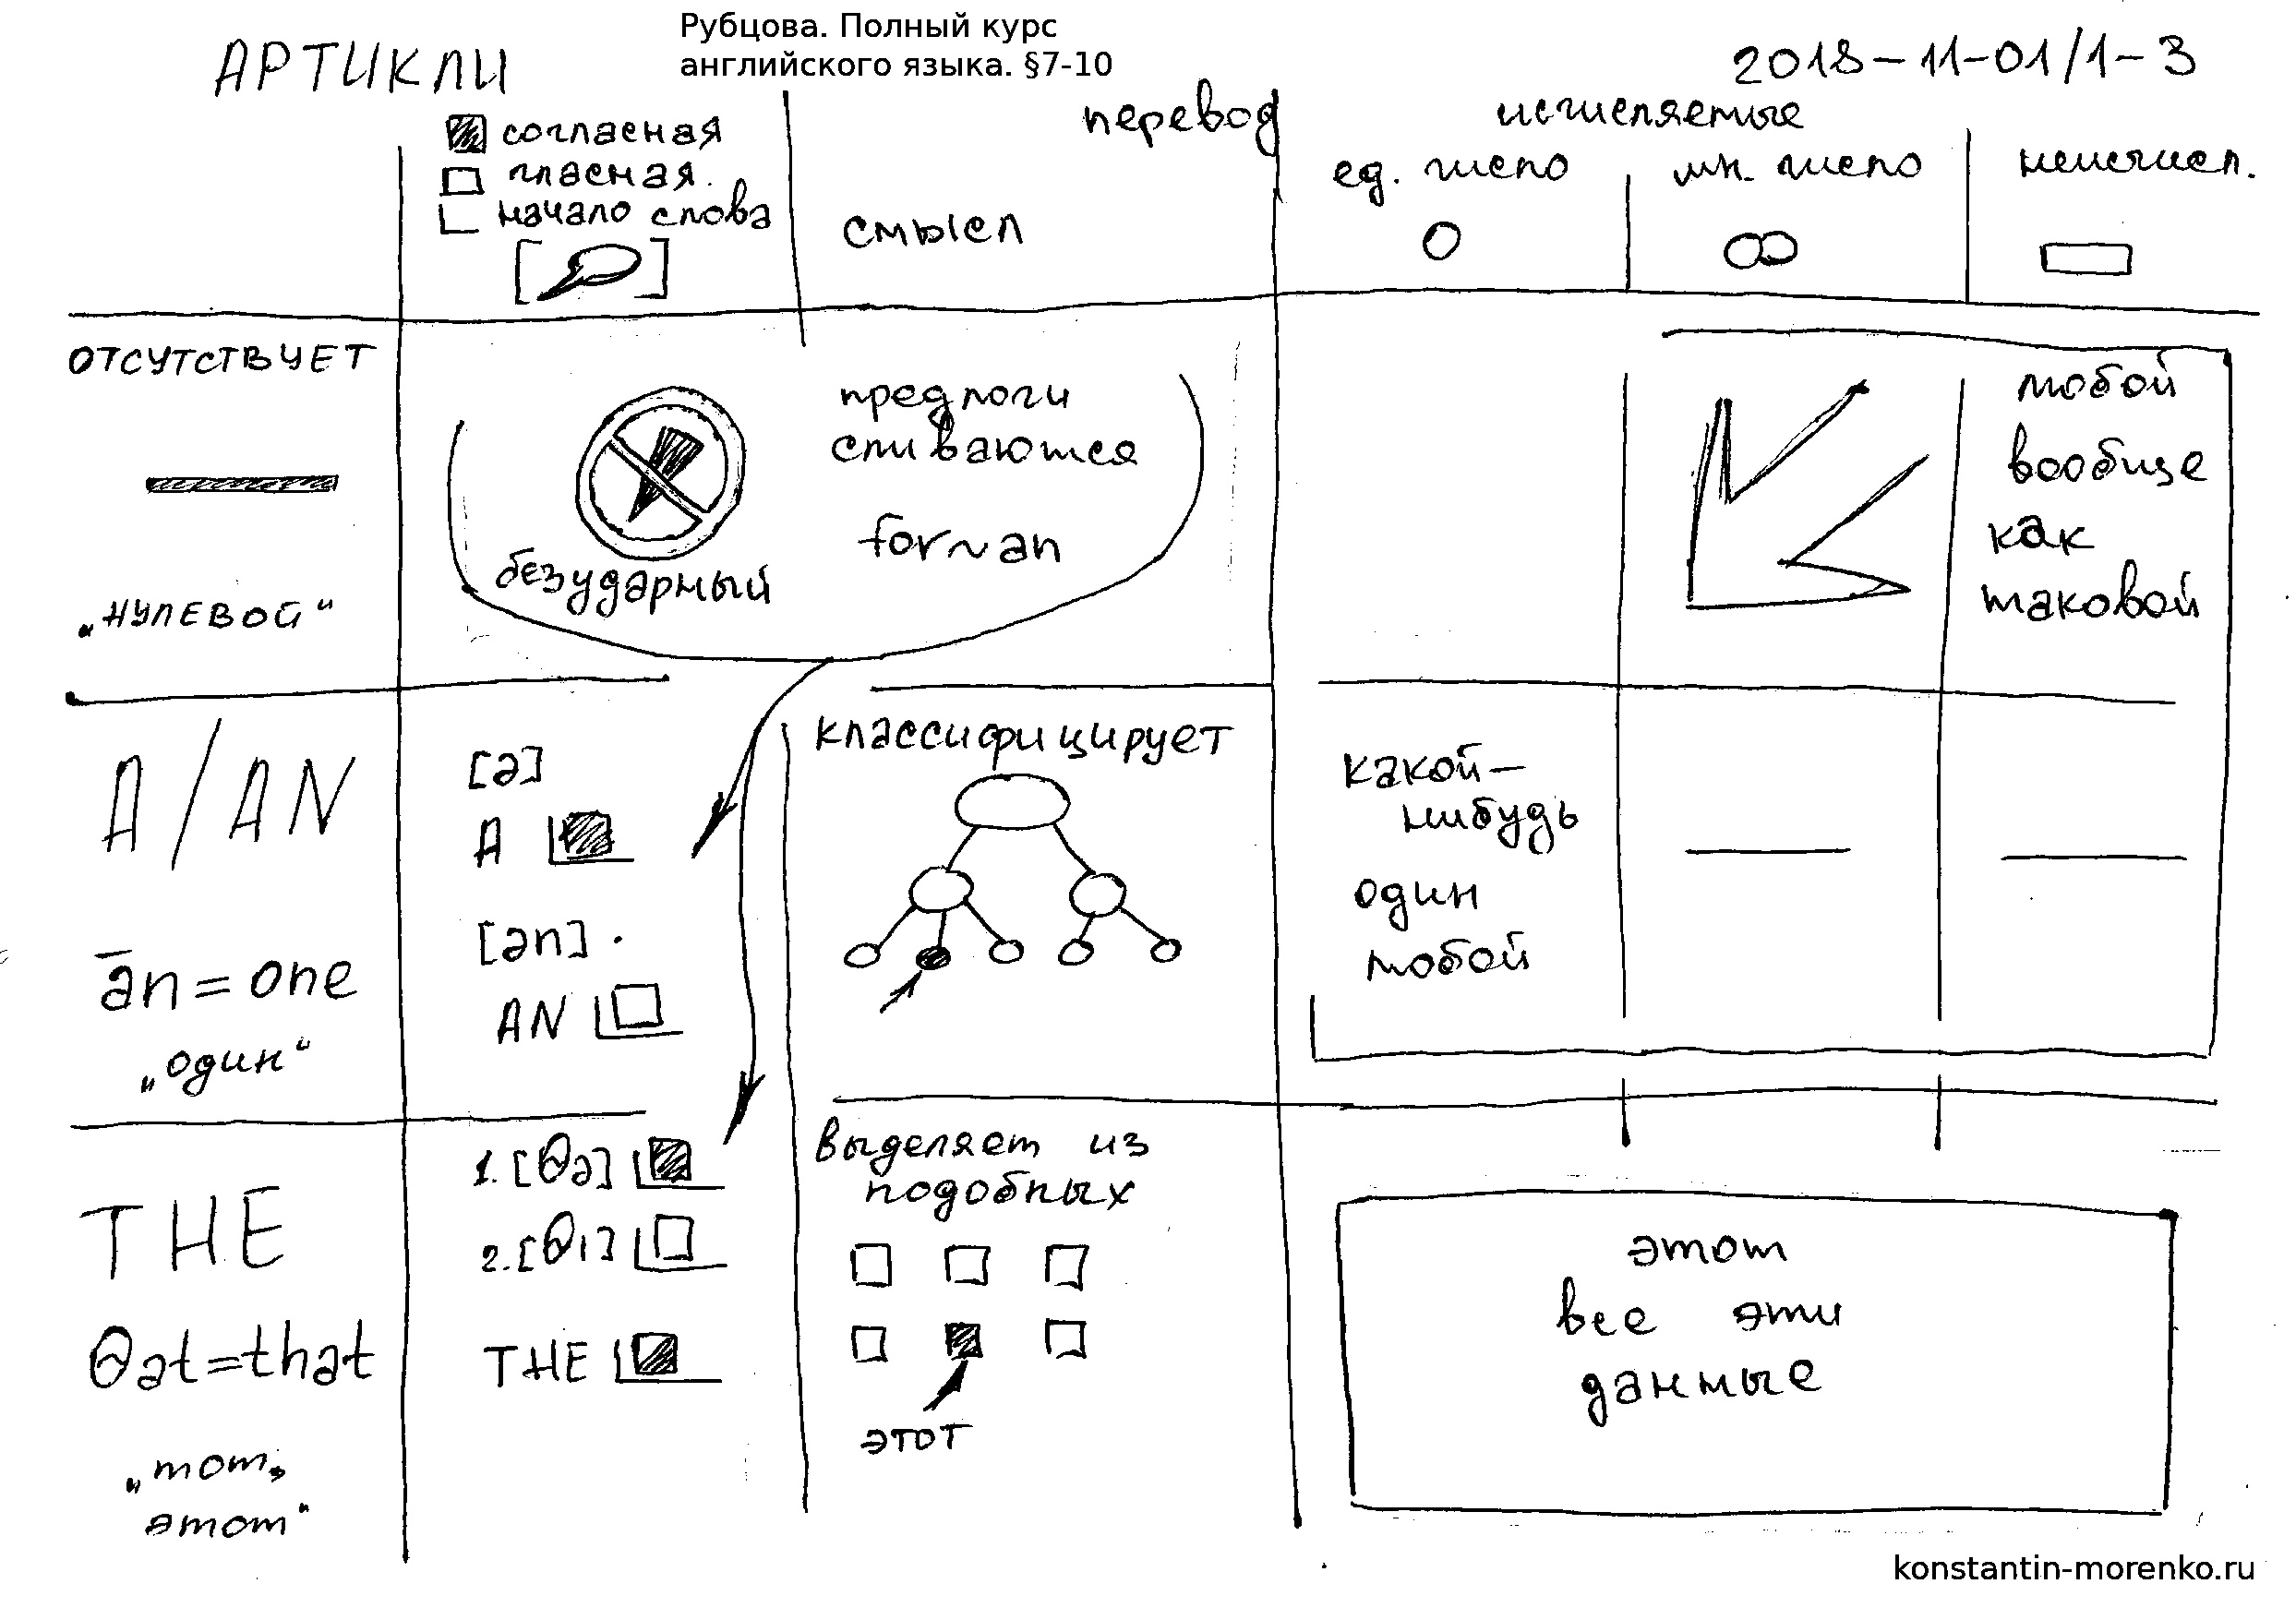 АРТИКЛИ
Рубцова. Полный курс
английского языка. §7-10
2018-11-01/1-3
согласная
гласная
начало слова
смысл
перевод
исчисляемые
ед. число
мн. число
неисчисл.
ОТСУТСТВУЕТ
„НУЛЕВОЙ“
безударный
предлоги
сливаются
for~an
любой
вообще
как
таковой
A/AN
ān=one
„один“
[ə]
A
[ən]
AN
классифицирует
какой-
нибудь
один
любой
THE
θət=that
„тот,
этот“
1.[θə]
2.[θı]
THE
выделяет из
подобных
этот
этот
все эти
данные
konstantin-morenko.ru